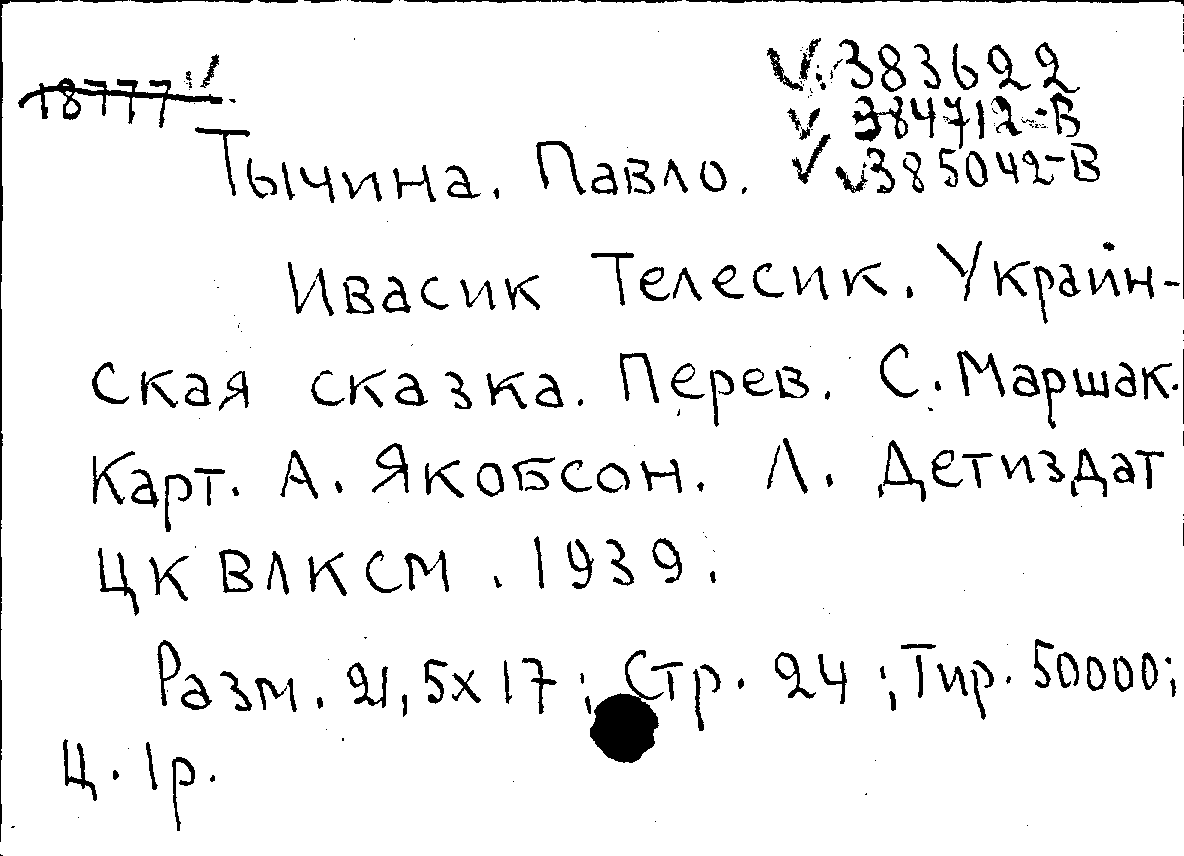 18777
383622
384712-В
Тычина, Павло. 385042-В
Ивасик Телесик. Украин-
ская сказка. Перев. С. Маршак.
Карт. А. Якобсон. Л. Детиздат
ЦК ВЛКСМ. 1939.
Разм. 21,5х17; Стр. 24; Тир. 50000;
Ц. 1р.